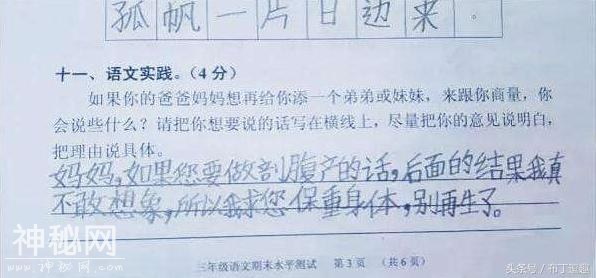 孤帆一片日边来。
十一、语文实践。(4分)
如果你的爸爸妈妈想再给你添一个弟弟或妹妹，来跟你商量，你
会说些什么？请把你想要说的话写在横线上，尽量把你的意见说明白，
把理由说具体。
妈妈，如果您要做剖腹产的话，后面的结果我真
不敢想象，所以我求您保重身体，别再生了。
三年级语文期末水平测试 第3页 (共6页)
神秘网
头条号／布丁漫趣